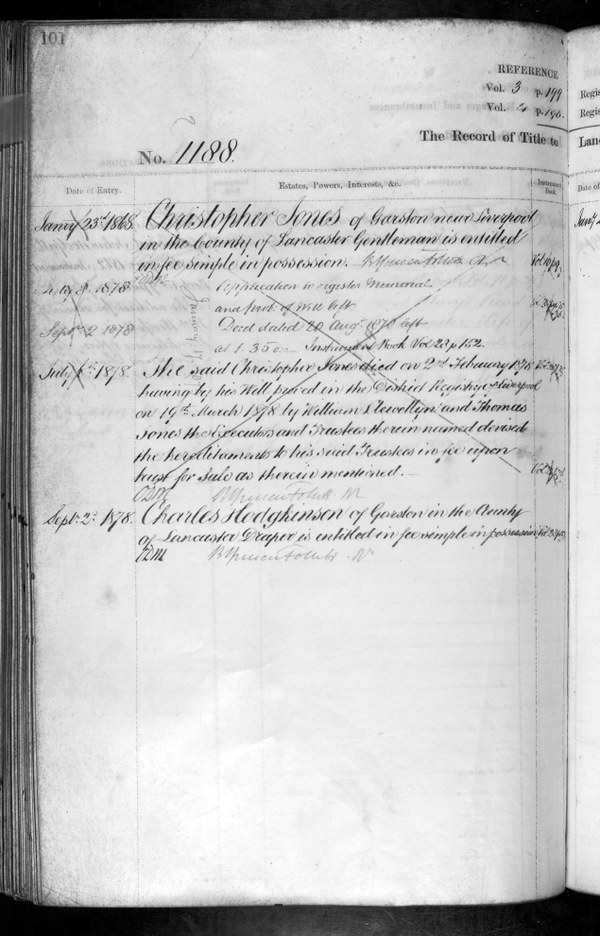 101
REFERENCE
Vol. 3 p. 199
Vol. 4 p. 196.
The Record of Title to
No. 1188.
Date of Entry.
Estates, Powers, Interests, &c.
Instrument Book.
Jany 23d 1868.
Christopher Jones of Garston near Liverpool
in the County of Lancaster Gentleman is entitled
in fee simple in possession.
July 1878
Application to register Memorial
and prob. of Will left
Sept 2 1878
Deed dated 20 Augt 1878 left
at 1.35 Instrument Book Vol 23 p 152
July 1878.
The said Christopher Jones died on 2nd February 1878
having by his Will proved in the District Registry of Liverpool
on 19th March 1878 by William Llewellyn and Thomas
Jones the Executors and Trustees therein named devised
the hereditaments to his said Trustees in fee upon
trust for Sale as therein mentioned.
Sept. 2d 1878.
Charles Hodgkinson of Garston in the County
of Lancaster Draper is entitled in fee simple in possession
Regis
Regis
Land
Date of